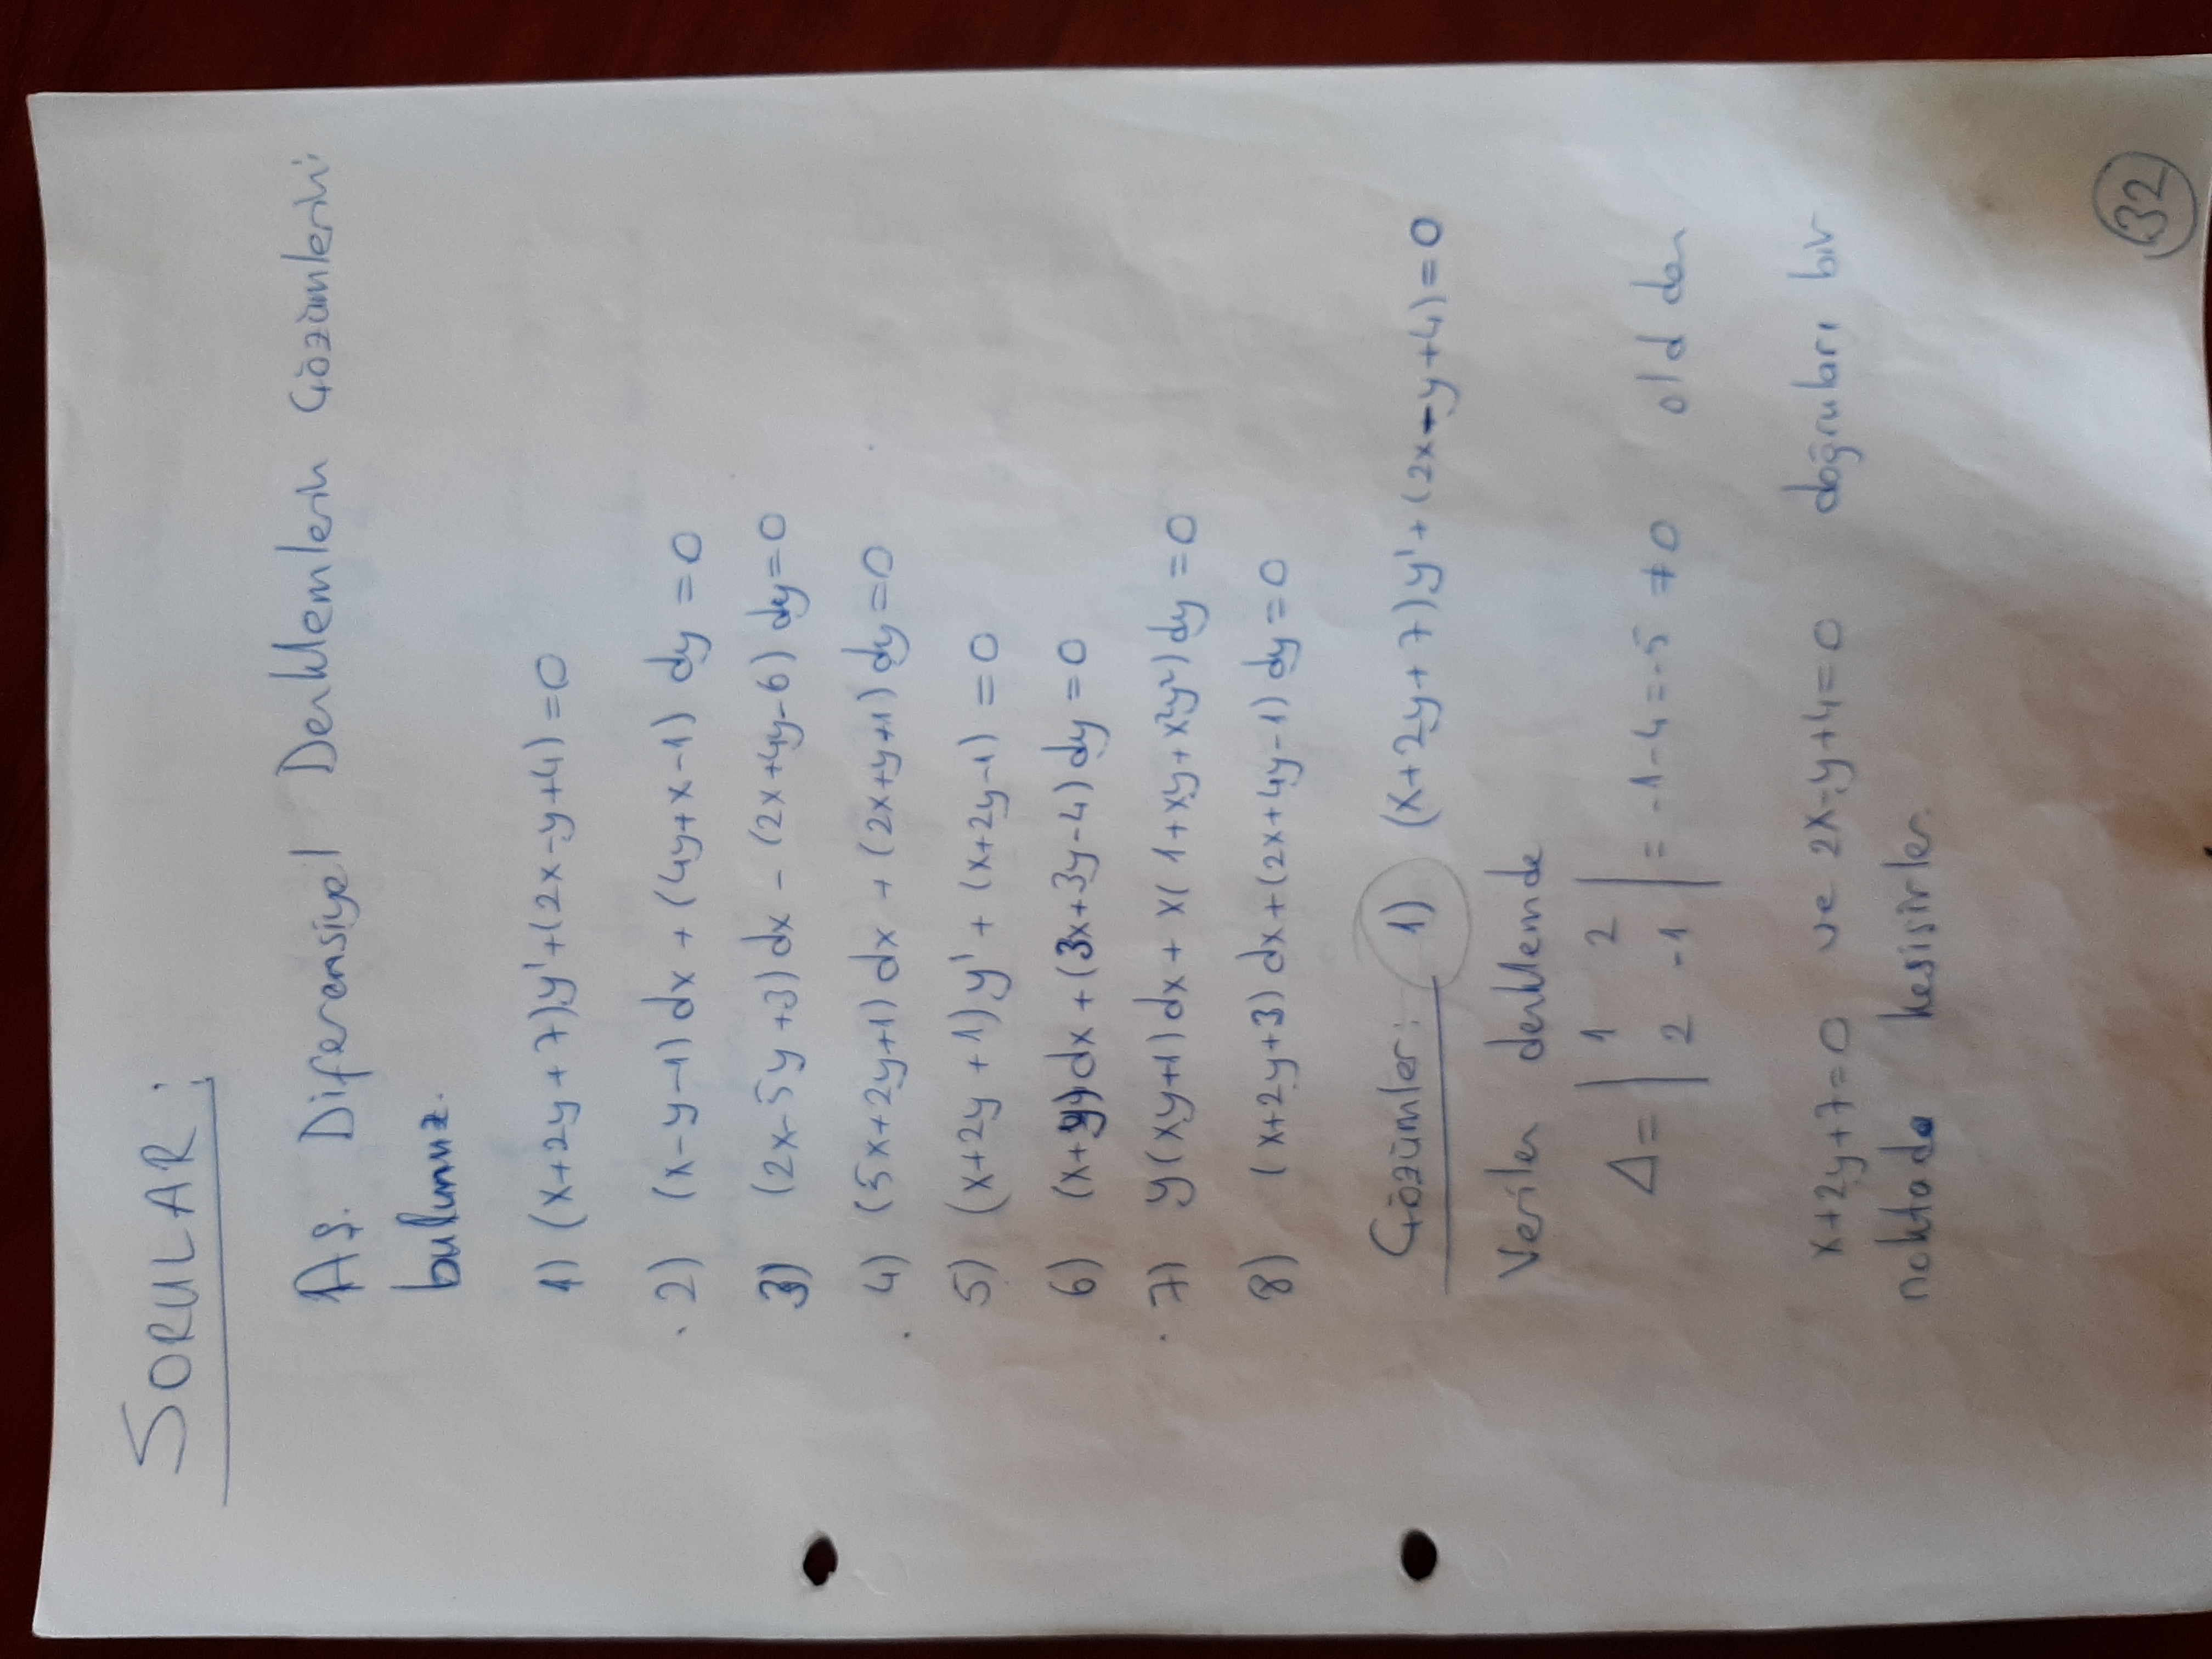 SORULAR:
Aş. Diferensiyel Denklemlerin Çözümlerini
bulunuz.
1) (x+2y+7)y'+(2x-y+4)=0
2) (x-y-1)dx+(4y+x-1) dy=0
3) (2x-5y+3)dx-(2x+4y-6) dy=0
4) (5x+2y+1)dx+(2x+y+1)dy=0
5) (x+2y+1)y'+(x+2y-1)=0
6) (x+y)dx+(3x+3y-4)dy=0
7) y(xy+1)dx+x(1+xy+x²y²)dy=0
8) (x+2y+3)dx+(2x+4y-1)dy=0
Çözümler: 1) (x+2y+7)y'+(2x-y+4)=0
Verilen denklemde
Δ= | 1 2
2 -1 | = -1-4=-5 ≠0 old dan
x+2y+7=0 ve 2x-y+4=0 doğruları bir
noktada kesişirler.
32